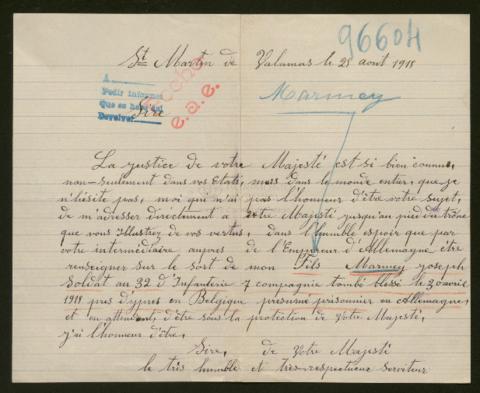 96604
St Martin de Valamas le 28 août 1918
A
Pedir informes
Que se haga así
Devolver
e.a.e.
Marmey
Sire
La justice de votre Majesté est si bien connue,
non-seulement dans vos Etats, mais dans le monde entier, que je
n'hésite pas, moi qui n'ai pas l'honneur d'être votre sujet,
de m'adresser directement à Votre Majesté jusqu'au pied du trône
que vous illustrez de vos vertus, dans l'humble espoir que par
votre intermédiaire aupres de l'Empereur d'Allemagne être
renseigner sur le sort de mon Fils Marmey joseph
Soldat au 32 d'Infanterie 7 compagnie tombé blessé le 30 avril
1918 pres d'ypres en Belgique présumé prisonnier en Allemagne,
et en attendant, d'être sous la protection de Votre Majesté,
j'ai l'honneur d'être,
Sire, de Votre Majesté
le très humble et très-respectueux serviteur